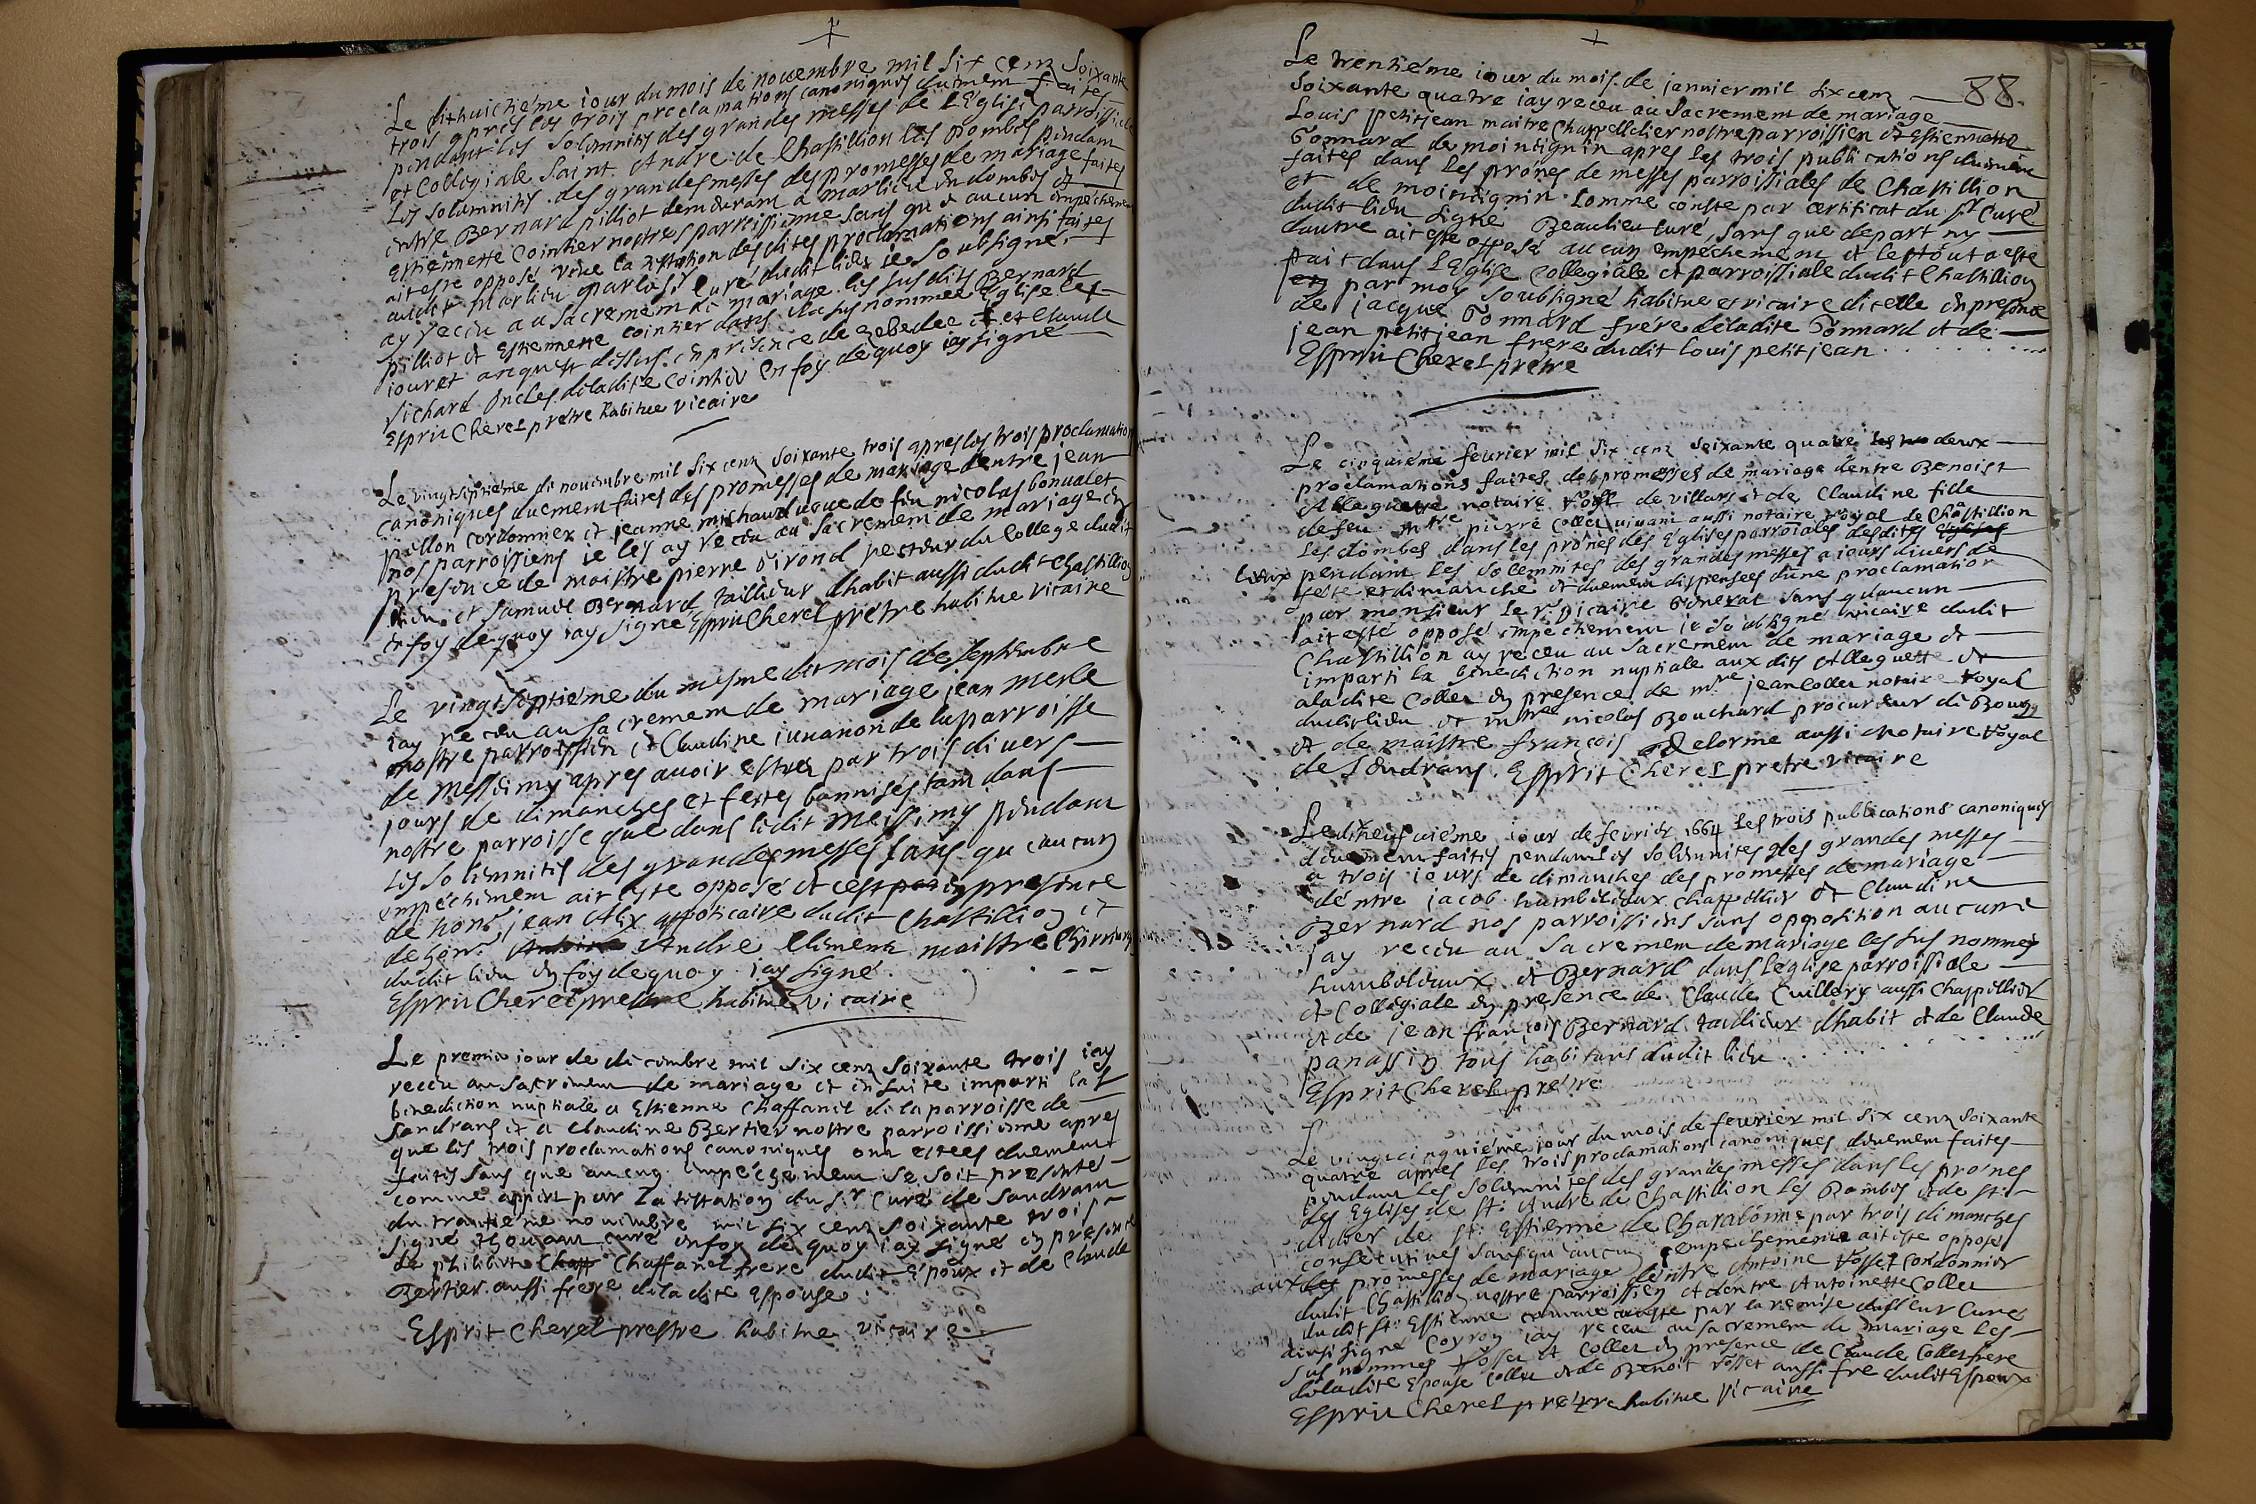 Le dixhuictiéme iour du mois de nouembre mil six cenz soixante
trois apres les trois proclamations canoniques duemem faites
pendant les solemnités des grandes messes de L'Eglise parroissiale
et Collegiale Saint Andre de Chastillion les Dombes pendam
Les solemnités des grandes messes des promesses de mariage faites
entre Bernard pilliot demeurant a marlieu en dombes et
Estiennette Cointier nostre parroissienne sans que aucun empéchemem
ait este opposé veue la testation desdites proclamations ainsi faites
audit marlieu par le Sr Curé dudit lieu ie Soubsigné
ay receu au Sacremem de mariage les susdits Bernard
pilliot et Estiennette cointier dans la susnommée Eglise
iour et an que dessus en presence de Zebedee et Claude
Richard oncles de ladite Cointier en foy de quoy iay signé
Esprit Cherel prétre habitue vicaire
Le vingtseptiéme de nouembre mil six cenz soixante trois apres les trois proclamations
canoniques duement faites des promesses de mariage d'entre jean
pallon cordonnier et jeanne michaud veue de feu nicolas bonualet
nos parroissiens ie les ay receu au Sacremem de mariage en
presence de maistre pierre Girond recteur du College dudit
lieu et Samuel Bernard tailleur dhabit aussi dudit Chastillion
en foy de quoy iay signé Esprit Cherel prétre habitue vicaire
Le vingtseptiéme du mesme dit mois de septembre
iay receu au sacremem de mariage jean merle
nostre parroissien et Claudine iunanon de la parroisse
de messimy apres auoir estes par trois diuers
jours de dimanches et festes bannises tam dans
nostre parroisse que dans ledit meissimy pendam
Les solemnités des grandes messes sans qu'aucun
empéchemem ait este opposé et cest par en presence
de honr. jean Alix appoticaire dudit Chastillion et
de honr. Antoine Andre Climem maistre Chirurg
dudit lieu en foy de quoy iay signé
Esprit Cherel prestre habitue vicaire
Le premier jour de decembre mil six cenz soixante trois iay
receu au sacremem de mariage et en suite imparti la
benediction nuptiale a Estienne Chaffanel de la parroisse de
Sandrans et a Claudine Bertier nostre parroissienne apres
que les trois proclamations canoniques ont estees duement
faites sans que aucung empéchemem se soit presentés
comme appert par la testation du Sr. Curé de Sandrans
du trantiéme nouembre mil six cenz soixante trois
signé Thouam curé en foy de quoy iay signé en presence
de philibert Chaff Chaffanel frere dudit époux et de Claude
Bertier aussi frere de la dite Espouse.
Esprit Cherel prestre habitue vicaire
88.
Le trentiéme iour du mois de janvier mil six cenz
Soixante quatre iay receu au Sacrement de mariage
Louis petitjean maitre Chappellier nostre parroissien et Estiennette
Gonnard de moinetignin apres les trois publications duemem
faites dans les prónes de messes parroissiales de Chastillion
et de moinetignin Comme conste par certificat du Sr Curé
dudit lieu signé Beaulieu Curé, sans que depart ny
dautre ait este opposé aucun empéchemem et le tout a esté
fait dans L'Eglise Collegiale et parroissiale dudit Chastillion
par moy Soubsigné habitue et vicaire dicelle en presence
de jacque Gonnard frére de ladite Gonnard et de
jean petitjean frere dudit Louis petitjean
Esprit Cherel prétre
Le cinquiéme feurier mil six cenz Soixante quatre les deux
proclamations faites des promesses de mariage d'entre Benoist
Alleguette notaire royal de villars et de Claudine fille
de feu mtre pierre Collet viuant aussi notaire royal de Chastillion
Les dombes dans les prónes des Eglises parroisales desdites Eglises
lieux pendant Les solemnités des grandes messes a iours diuers de
feste et dimanche et duemem dispensees d'une proclamation
par monsieur le vicaire General sans qu'aucun
ait esté opposé empéchemem ie Soubsigné vicaire dudit
Chastillion ay receu au Sacremem de mariage et
imparti la benediction nuptiale aux dits Alleguette et
a ladite Collet en presence de mtre jean Collet notaire royal
dudit lieu et mtre nicolas Bouchard procureur de Bourg
et de maistre francois Delorme aussi notaire royal
de Sandrans. Esprit Cherel prétre vicaire
Le dixneufuiéme iour de feurier 1664 Les trois publications canoniques
duemem faites pendant les solemnités des grandes messes
a trois iours de dimanches des promesses de mariage
d'entre jacob humbeldeux chappellier et Claudine
Bernard nos parroissiens sans opposition aucune
jay receu au Sacremem de mariage les sus nommés
humbeldeux et Bernard dans Léglise parroissiale
et Collégiale en presence de Claude Cuillery aussi Chappellier
et de jean françois Bernard tailleur dhabit et de Claude
panassin tous habitans dudit lieu
Esprit Cherel prétre
Le vingtcinquiéme jour du mois de feurier mil six cenz soixante
quatre apres les trois proclamations canoniques duemem faites
pendant les solemnités des grandes messes dans les prónes
des Eglises de St. Andre de Chastillion les Dombes et de St.
didier de St. Estienne de Chaalaronne par trois dimanches
consecutiues sans qu'aucun empechement ait este opposé
aux les promesses de mariage d'entre Antoine Rosset Cordonnier
dudit Chastillion nostre parroissien et d'entre Antoinette Collet
dudit St. Estienne comme conste par la remise du Sieur Curé
ainsi signé Corron iay receu au sacremem de mariage les
sus nommes Rosset et Collet en presence de Claude Collet frere
de ladite Epouse Collet et de Benoit Rosset aussi frere dudit Espoux
Esprit Cherel prétre habitue vicaire